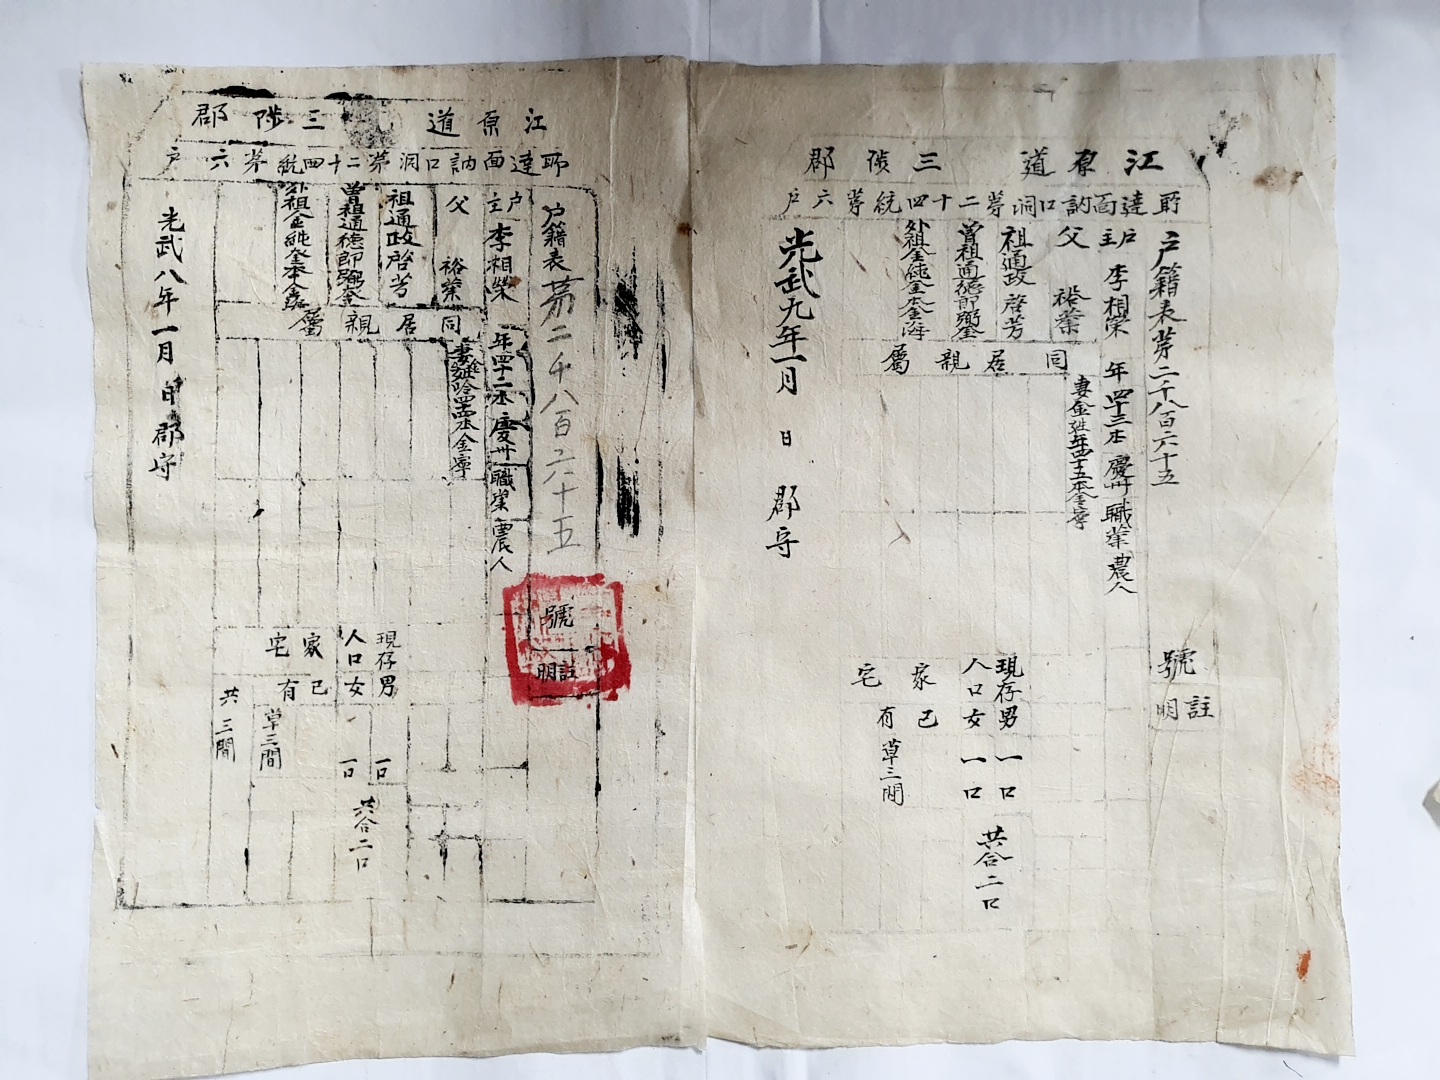 江原道 三陟郡
所達面訥口洞第二十四統第六戶
戶籍表第二千八百六十五
號
註明
戶主 李相榮 年四十三 本慶州 職業農人
父 裕業
祖通政啓芳
曾祖通德郎弼
外祖金純 本金海
同居親屬
妻金姓年四十五本金寧
現存男 一口
人口女 一口
共合二口
家宅
己有 草三間
光武九年一月 日 郡守
江原道 三陟郡
所達面訥口洞第二十四統第六戶
戶籍表第二千八百六十五
號
註明
戶主 李相榮 年四十二 本慶州 職業農人
父 裕業
祖通政啓芳
曾祖通德郎弼
外祖金純 本金
同居親屬
妻 四十四本金寧
現存男 一口
人口女 一口
共合二口
家宅
己有 草三間
共三間
光武八年一月 日 郡守